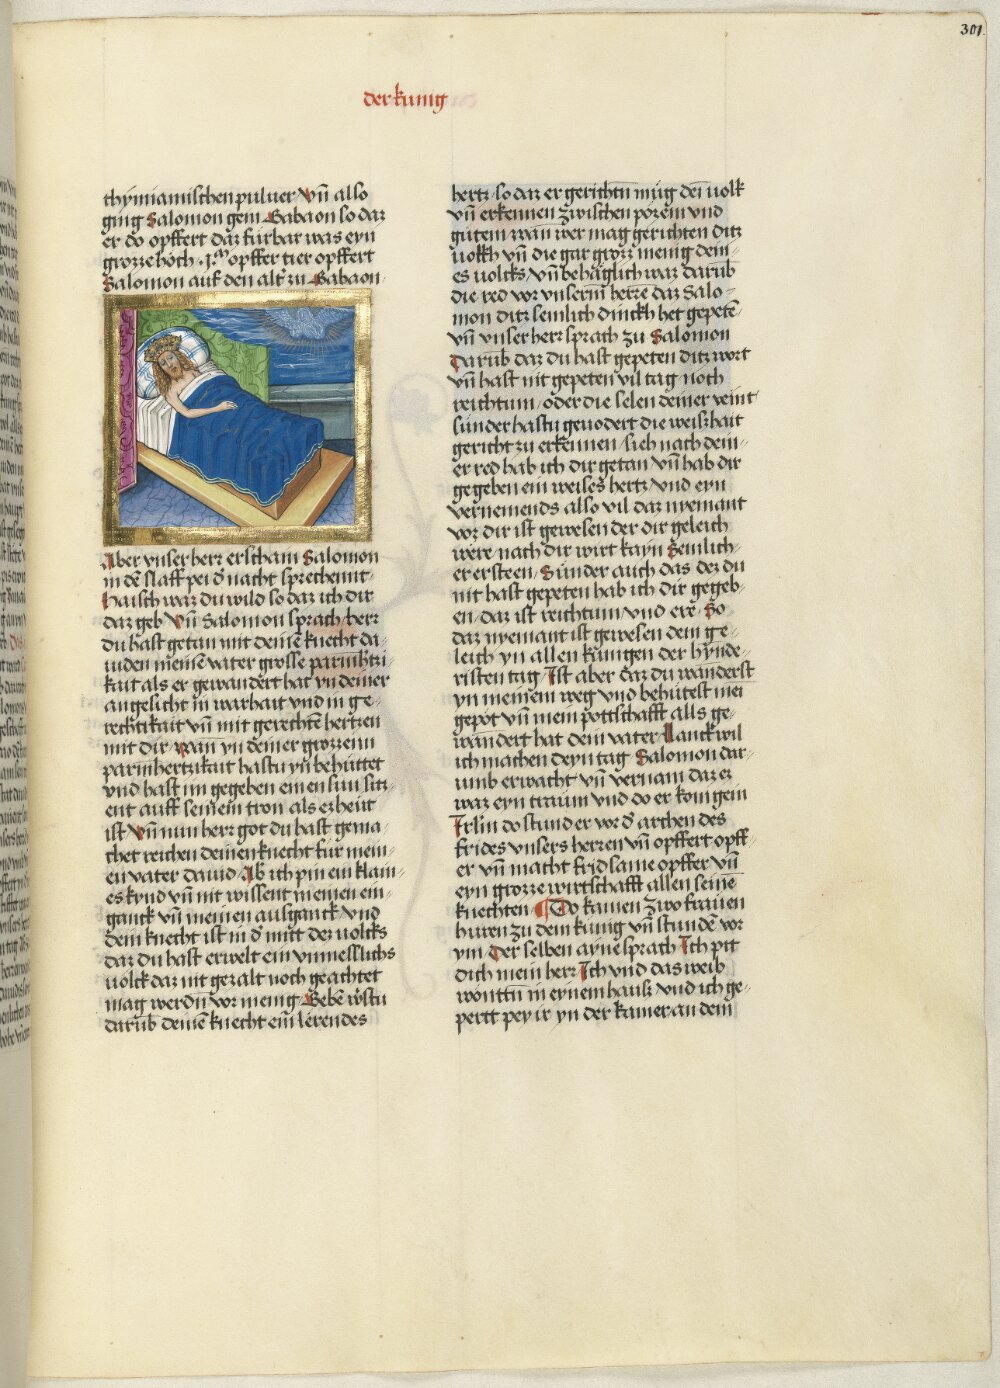 301.
der kunig
thymiamischen puluer Vn̄ also
ging Salomon gem Gabaon so daz
er do opffert daz furbar was eyn
grozze hoch .j.ᵐ opffer tier opffert
Salomon auf den alt' zu Gabaon
Aber vnser herr erscham Salomon
in dē slaff pei d' nacht sprechennt
haisch waz du wild so daz ich dir
daz geb Vn̄ Salomon sprach herr
du hast getan mit deinē knecht da-
uiden meinē vater grosse parmhtzi-
kait als er gewandert hat yn deiner
angesicht in warhait vnd in ge-
rechtikait vn̄ mit gerechtē hertzen
mit dir wan yn deiner grozzenn
parmhertzikait hastu yn̄ behuttet
vnd hast im gegeben einen sun sitz-
ent auff seinem tron als ez heut
ist Vn̄ nun herr got du hast gema-
chet reichen deinen knecht fur mein-
en vater dauid Ab ich pin ein klain-
es kynd vn̄ mit wissent meinen ein-
ganck vn̄ meinen ausganck vnd
dein knecht ist in d' mitt dez uolcks
daz du hast erwelt ein vnmesslichs
uolck daz nit gezalt noch geachtet
mag werdn̄ vor menig Gebē w'stu
darub deinē knecht ein lerendes
hertz so daz er gerichtn̄ mug dein uolk
vn̄ erkennen zwischen pozem vnd
gutem wan wer mag gerichten ditz
uolkh vn̄ die gar grozz menig dein-
es uolcks vn̄ behaglich waz darub
die red vor vnserm̄ herrē daz Salo-
mon ditz semlich dinckh het gepetē-
vn̄ vnser herr sprach zu Salomon
Darub daz du hast gepeten ditz wort
vn̄ hast nit gepeten vil tag noch
reichtum oder die selen deiner veint
sunder hastu geuodert die weishait
gericht zu erkennen sich nach dein-
er red hab ich dir getan vn̄ hab dir
gegeben ein weises hertz vnd eyn
vernemends also vil daz nyemant
vor dir ist gewesen der dir geleich
were nach dir wirt kayn semlich-
er ersteen Sunder auch das dez du
nit hast gepeten hab ich dir gegeb-
en daz ist reichtum vnd ere So
daz nyemant ist gewesen dein ge-
leich yn allen kungen der hynde-
risten tag Ist aber daz du wanderst
yn meinem weg vnd behutest mei
gepot vn̄ mein pottschafft alls ge-
wandert hat dein vater Lanck wil
ich machen deyn tag Salomon dar-
umb erwacht vn̄ vernam daz ez
waz eyn traum vnd do er kom gem
Irlm do stund er vor d' archen des
frides vnsers herren vn̄ opffert opff-
er vn̄ macht fridsame opffer vn̄
eyn grozze wirtschafft allen seinē
knechten Do kamen zwo frauen
huren zu dem kunig vn̄ stundē vor
ym Der selben ayne sprach Ich pit
dich mein herr Ich vnd das weib
wontn̄ in eynem hauss vnd ich ge-
pertt pey ir yn der kamer an dem